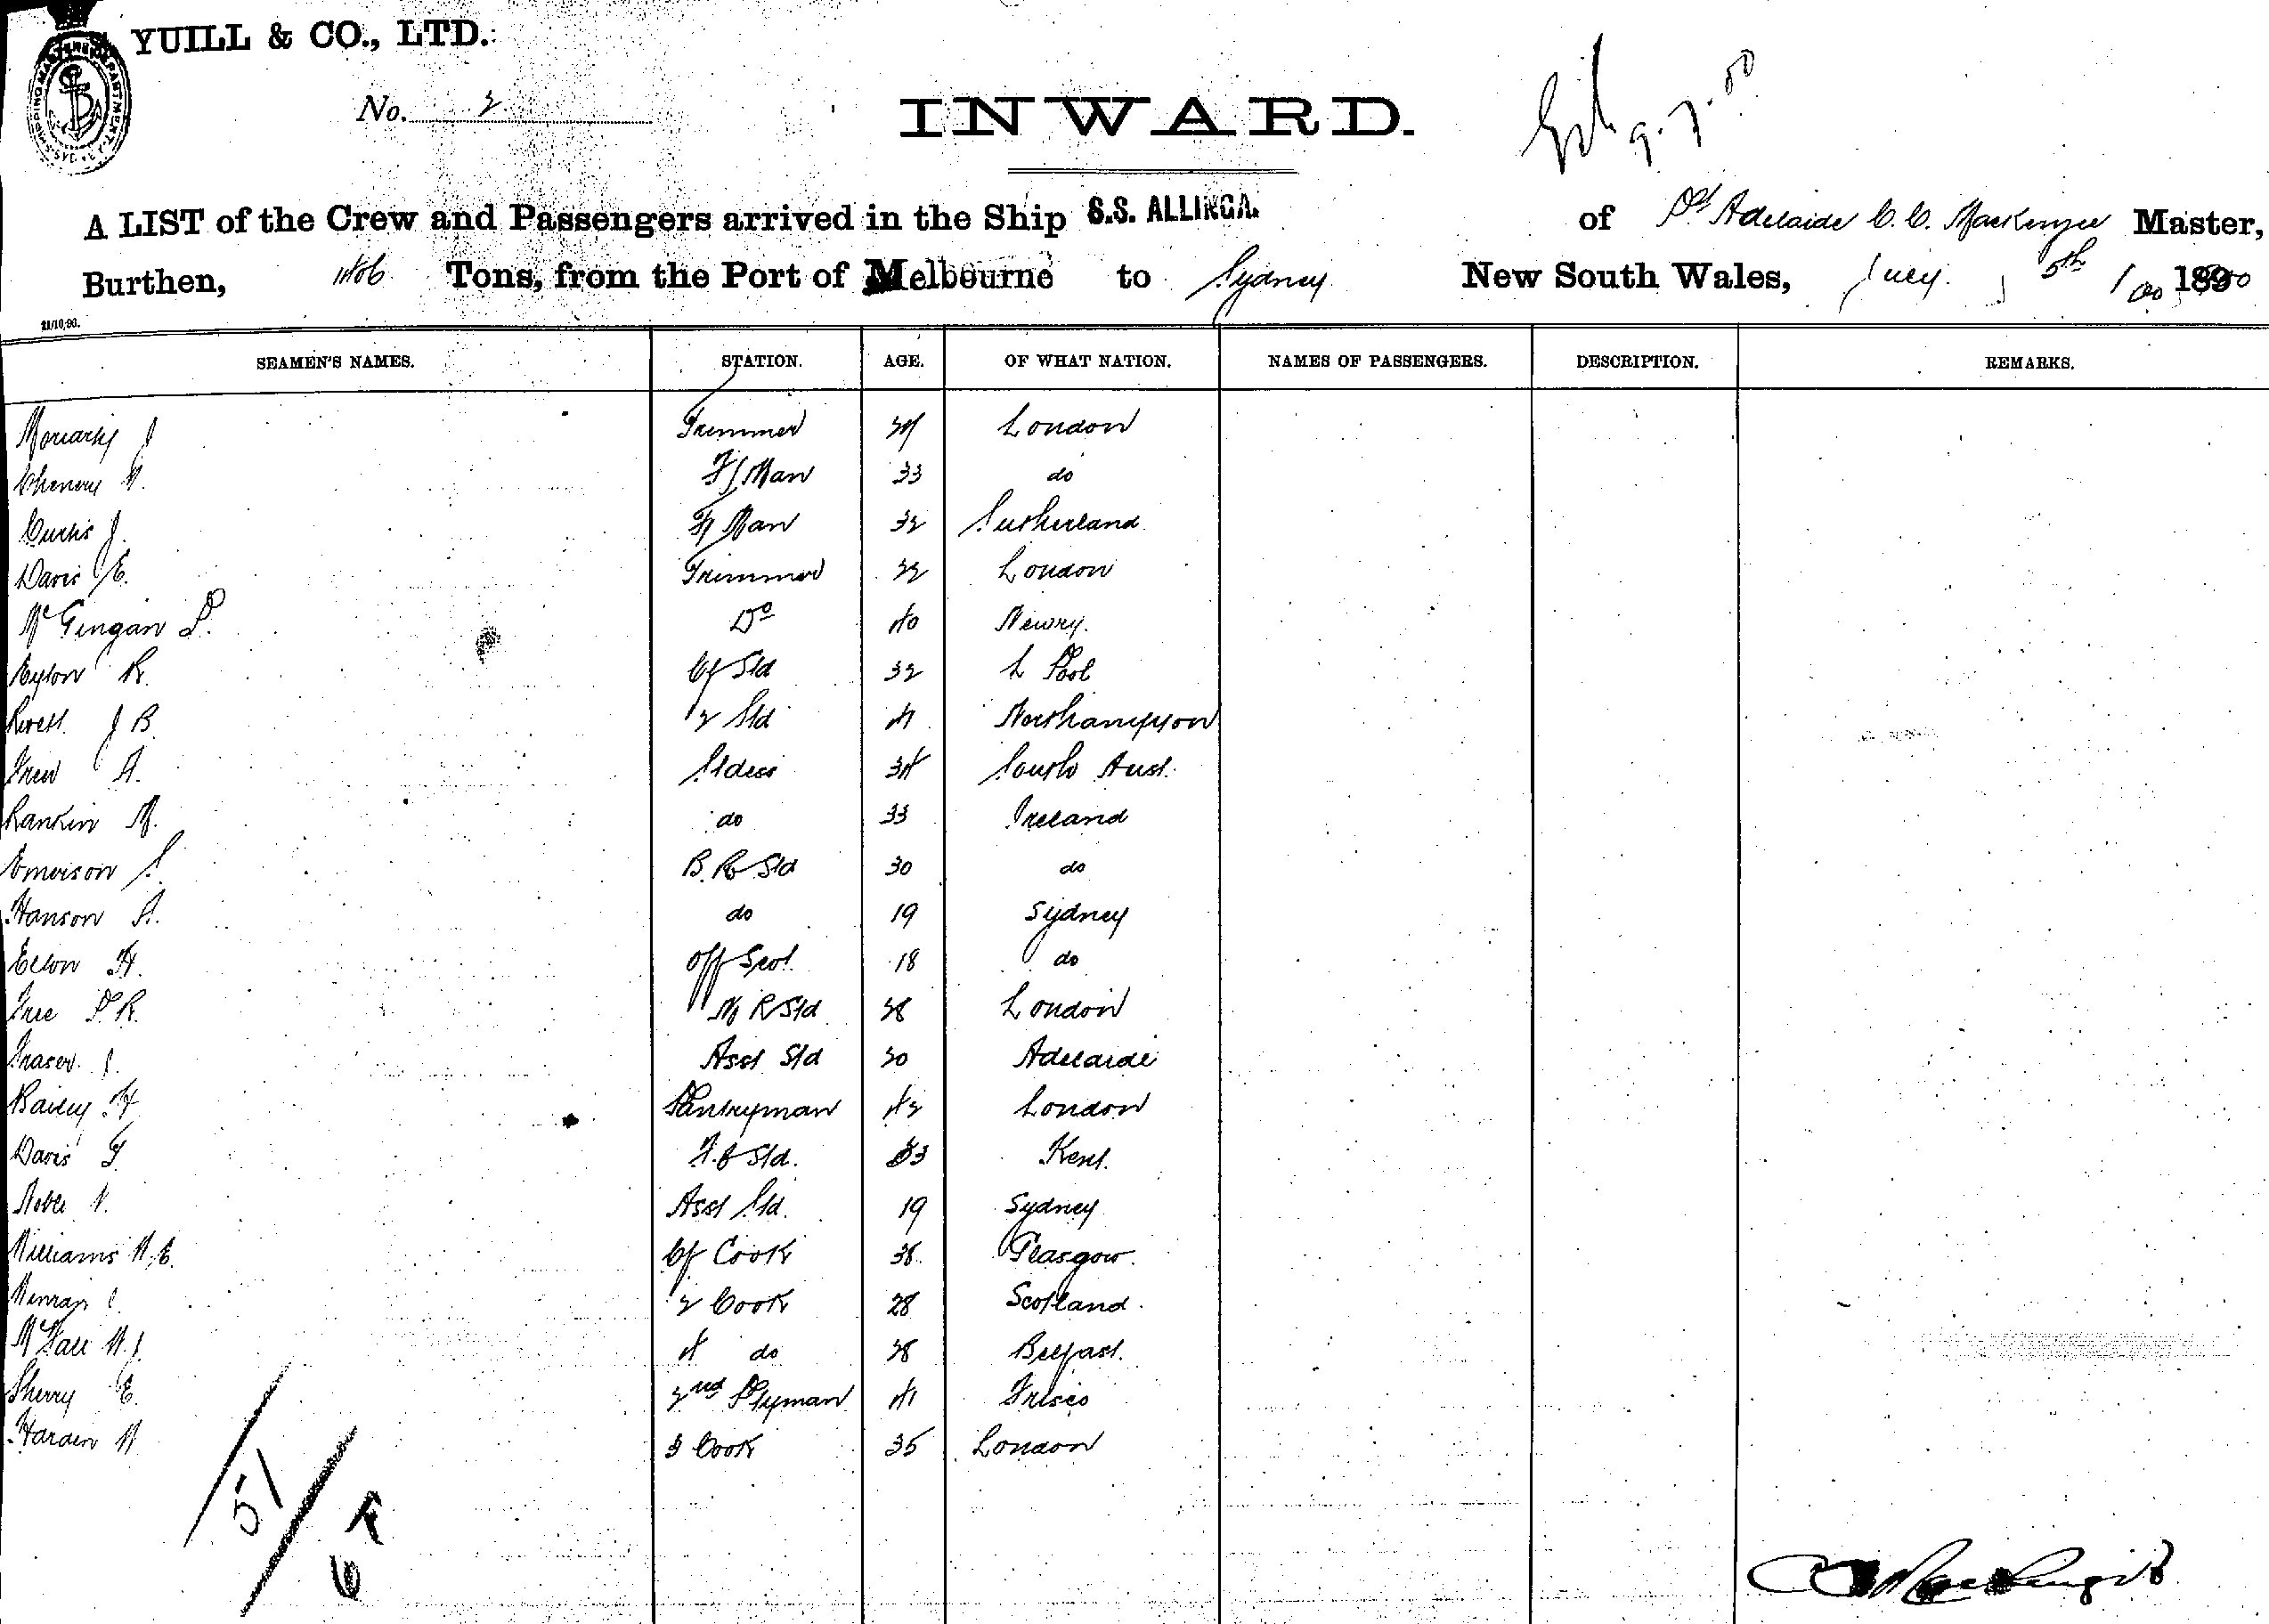 YUILL & CO., LTD.
No. 2
INWARD.
9.7.00
A LIST of the Crew and Passengers arrived in the Ship S.S. ALLINGA. of Pt Adelaide C. C. MacKenzie Master,
Burthen, Tons, from the Port of Melbourne to Sydney New South Wales, July 5th 189
21/10/96.
SEAMEN'S NAMES. STATION. AGE. OF WHAT NATION. NAMES OF PASSENGERS. DESCRIPTION. REMARKS.
Moriarty J Trimmer London
W. F/Man 33 do
Curtis J. F/Man 32 Sutherland
Davis E. Trimmer 22 London
Mc Gingan P. Do 40 Newry.
R. Cf Std 32 L Pool
J B. 2 Std Northampton
A. Stdess 34 South Aust.
Rankin M. do 33 Ireland
Emerson S. B. R Std 30 do
Hanson A. do 19 Sydney
H. Off Serv. 18 do
Free P. R. M R Std 28 London
Fraser J. Asst Std 20 Adelaide
Bailey H Pantryman 42 London
Davis G F.C Std. 33 Kent.
Noble W. Asst Std. 19 Sydney
Williams W.E. Cf Cook 38 Glasgow.
2 Cook 28 Scotland.
W.J. 4 do 28 Belfast.
Sherry E. 2nd Ptyman 41 Frisco
Harden W 3 Cook 35 London
51